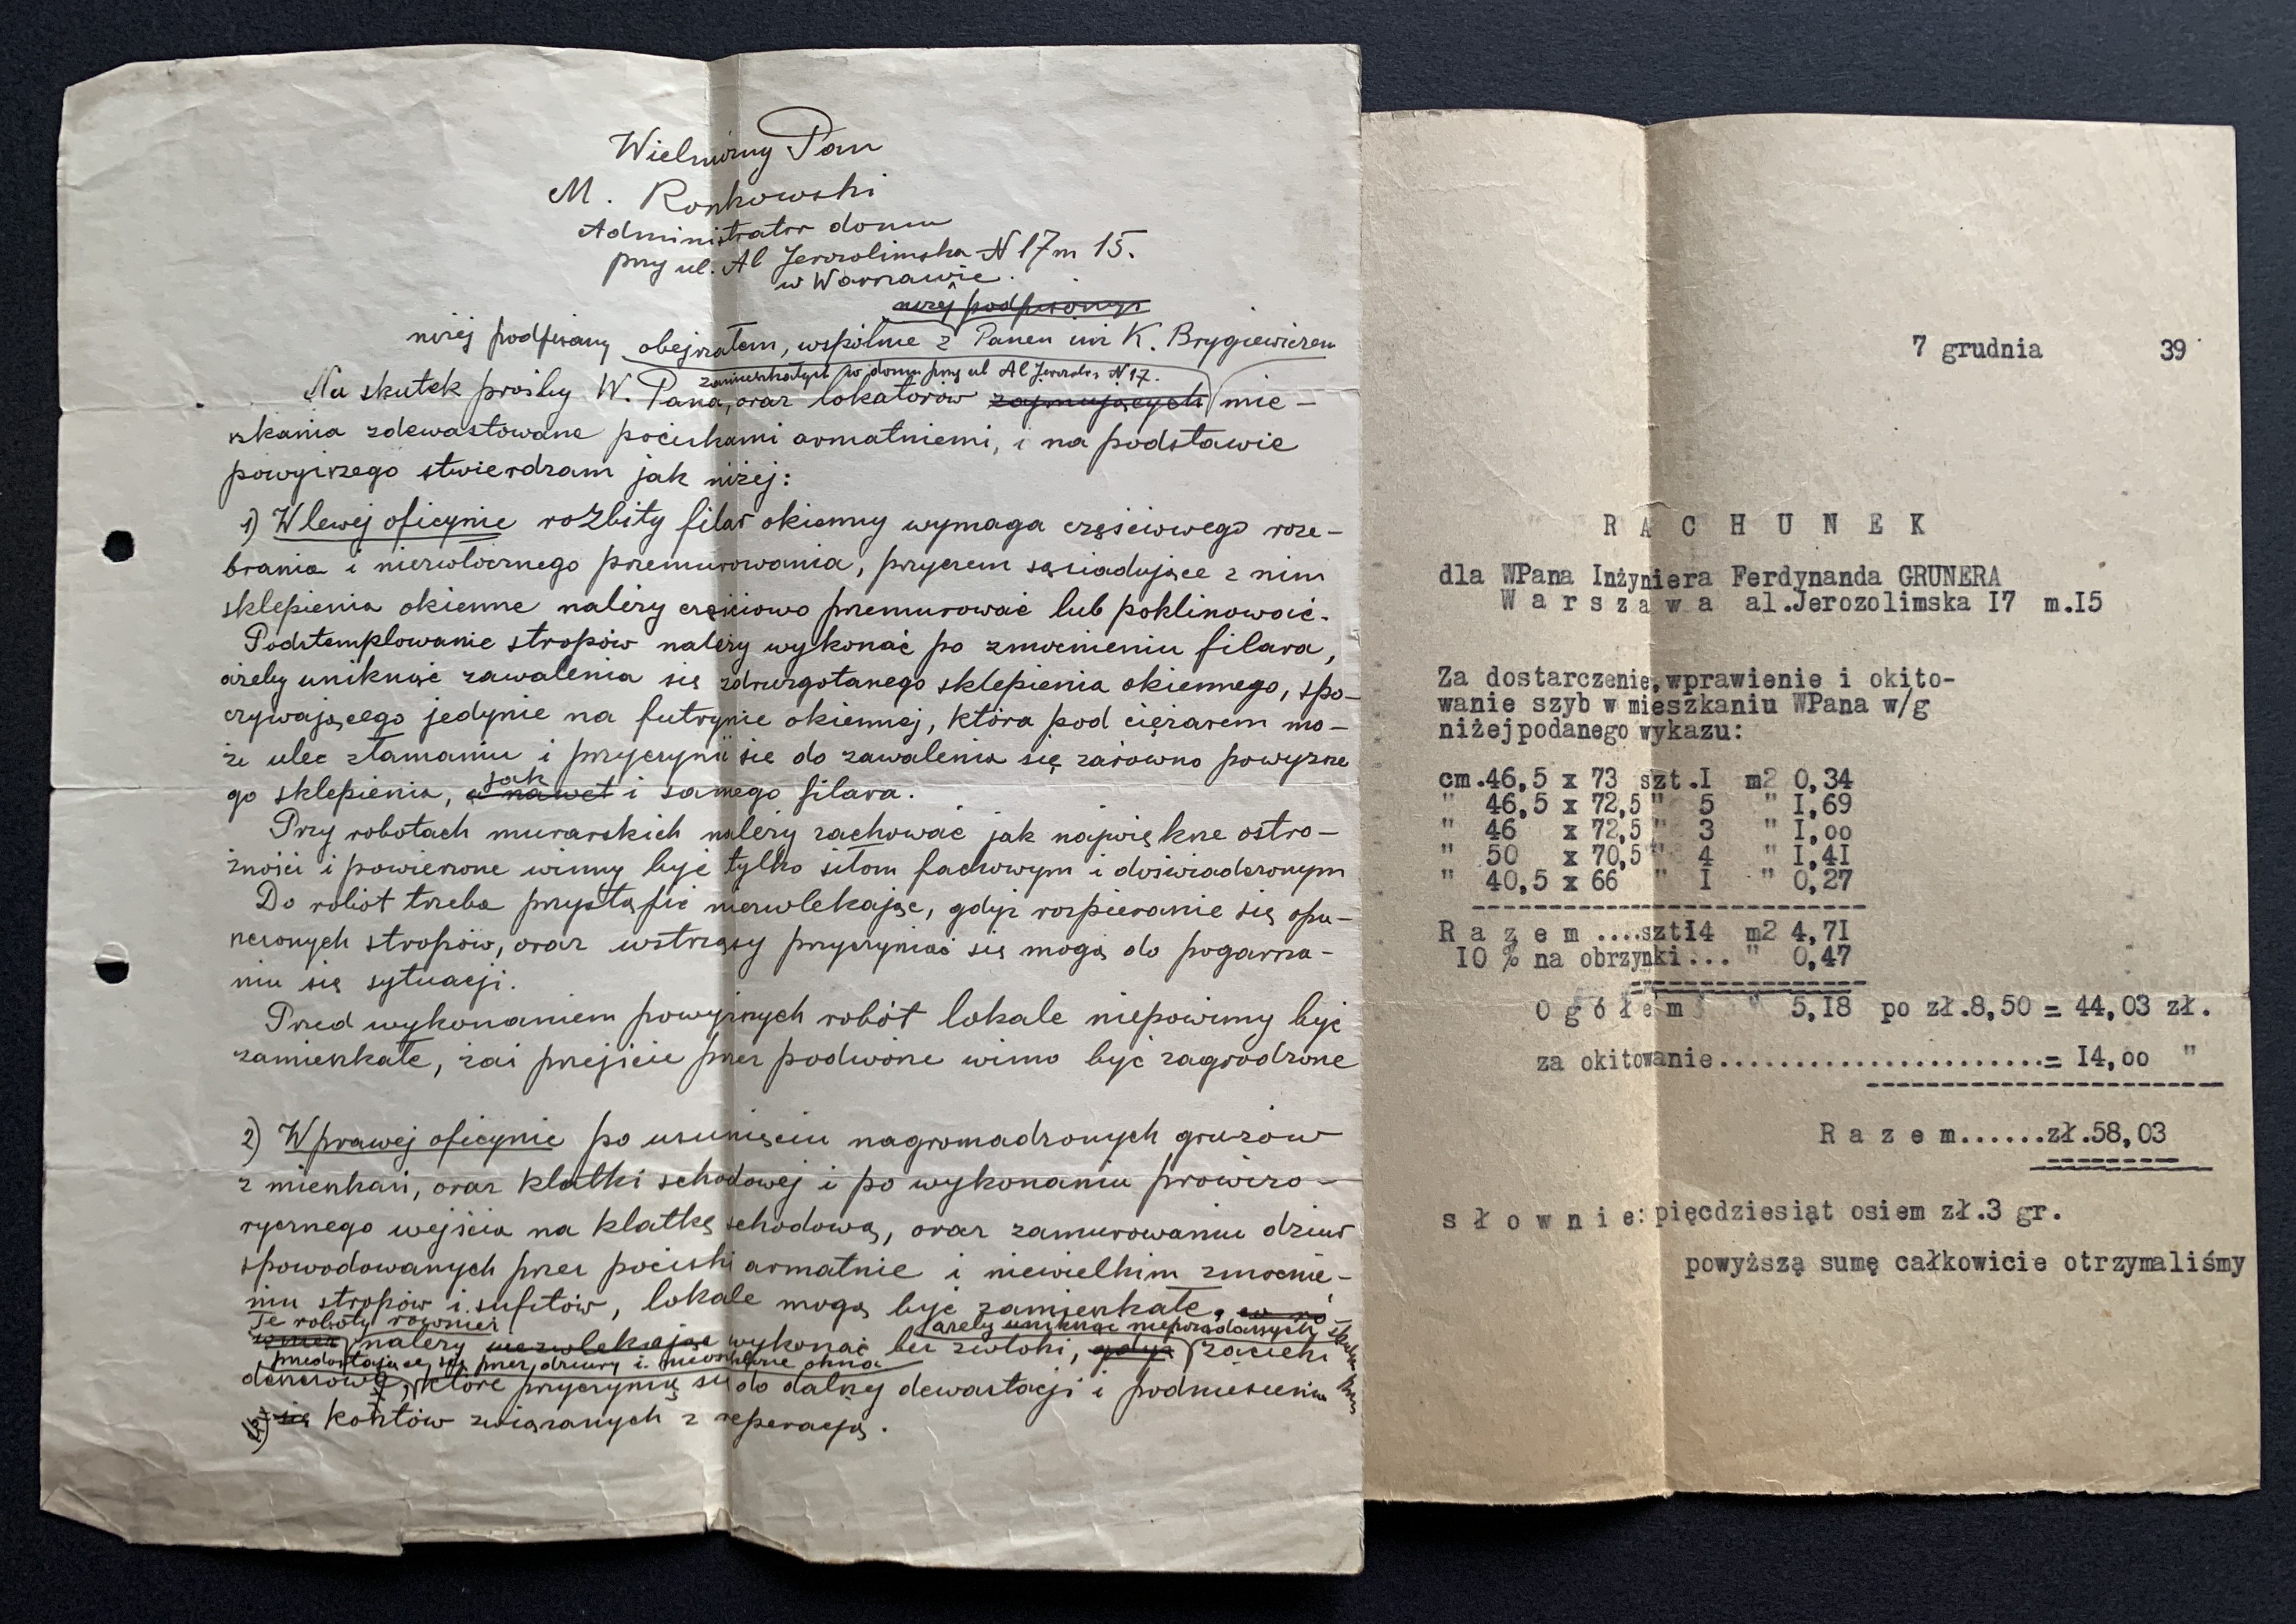 Wielmożny Pan
M. Ronkowski
Administrator domu
przy ul. Al Jerozolimska N 17 m 15.
w Warszawie.
niżej podpisany
niżej podpisany obejrzałem, wspólnie z Panem inż K. Brygiewiczem
zamieszkałych w domu przy ul Al Jerozol. N 17.
Na skutek prośby W. Pana, oraz lokatorów zajmujących mie-
szkania zdewastowane pociskami armatniemi, i na podstawie
powyższego stwierdzam jak niżej:
1) W lewej oficynie rozbity filar okienny wymaga częściowego roze-
brania i niezwłocznego przemurowania, przyczem sąsiadujące z nim
sklepienia okienne należy częściowo przemurować lub poklinować.
Podstemplowanie stropów należy wykonać po zmocnieniu filara,
ażeby uniknąć zawalenia się zdruzgotanego sklepienia okiennego, spo-
czywającego jedynie na futrynie okiennej, która pod ciężarem mo-
że ulec złamaniu i przyczyni się do zawalenia się zarówno powyższe
jak
go sklepienia, a nawet i samego filara.
Przy robotach murarskich należy zachować jak największe ostro-
żności i powierzone winny być tylko siłom fachowym i doświadczonym
Do robót trzeba przystąpić niezwlekając, gdyż rozpieranie się opu-
szczonych stropów, oraz wstrząsy przyczyniać się mogą do pogarsza-
niu się sytuacji.
Przed wykonaniem powyższych robót lokale niepowinny być
zamieszkałe, zaś przejście przez podwórze winno być zagrodzone
2) W prawej oficynie po usunięciu nagromadzonych gruzów
z mieszkań, oraz klatki schodowej i po wykonaniu prowizo-
rycznego wejścia na klatkę schodową, oraz zamurowaniu dziur
spowodowanych przez pociski armatnie i niewielkim zmocnie-
niu stropów i sufitów, lokale mogą być zamieszkałe, ro
Te roboty również ażeby uniknąć niepożądanych
należy niezwlekając wykonać bez zwłoki, gdyż zacieki
przedostające się przez dziury i nieoszklone okna
deszczowe, które przyczynią się do dalszej dewastacji i podniesienia
się kosztów związanych z reperacją.
7 grudnia 39
R A C H U N E K
dla WPana Inżyniera Ferdynanda GRUNERA
W a r s z a w a al.Jerozolimska I7 m.I5
Za dostarczenie,wprawienie i okito-
wanie szyb w mieszkaniu WPana w/g
niżejpodanego wykazu:
cm.46,5 x 73 szt.I m2 0,34
" 46,5 x 72,5 " 5 " I,69
" 46 x 72,5 " 3 " I,oo
" 50 x 70,5 " 4 " I,4I
" 40,5 x 66 " I " 0,27
R a z e m ....szt I4 m2 4,7I
I0 % na obrzynki... " 0,47
O g ó ł e m " 5,I8 po zł.8,50 = 44,03 zł.
za okitowanie.......................= I4,oo "
R a z e m......zł.58,03
s ł o w n i e: pięcdziesiąt osiem zł.3 gr.
powyższą sumę całkowicie otrzymaliśmy